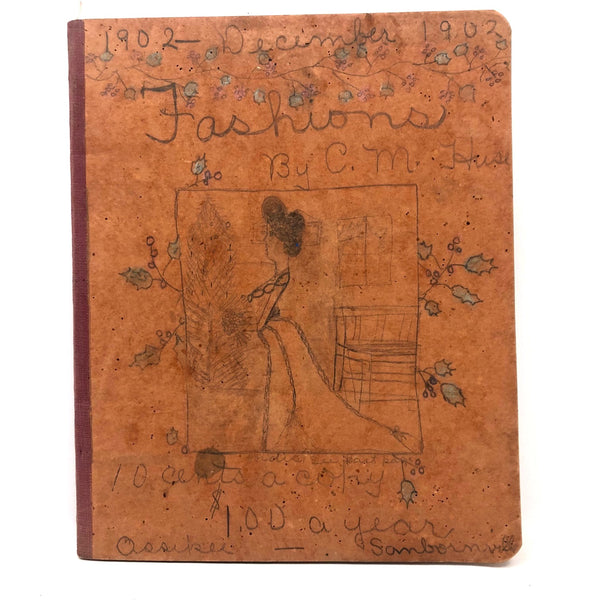 1902 - December 1902
Fashions
By C. M. Huse
10 cents a copy
$1.00 a year
Ossikee — Sanbornville